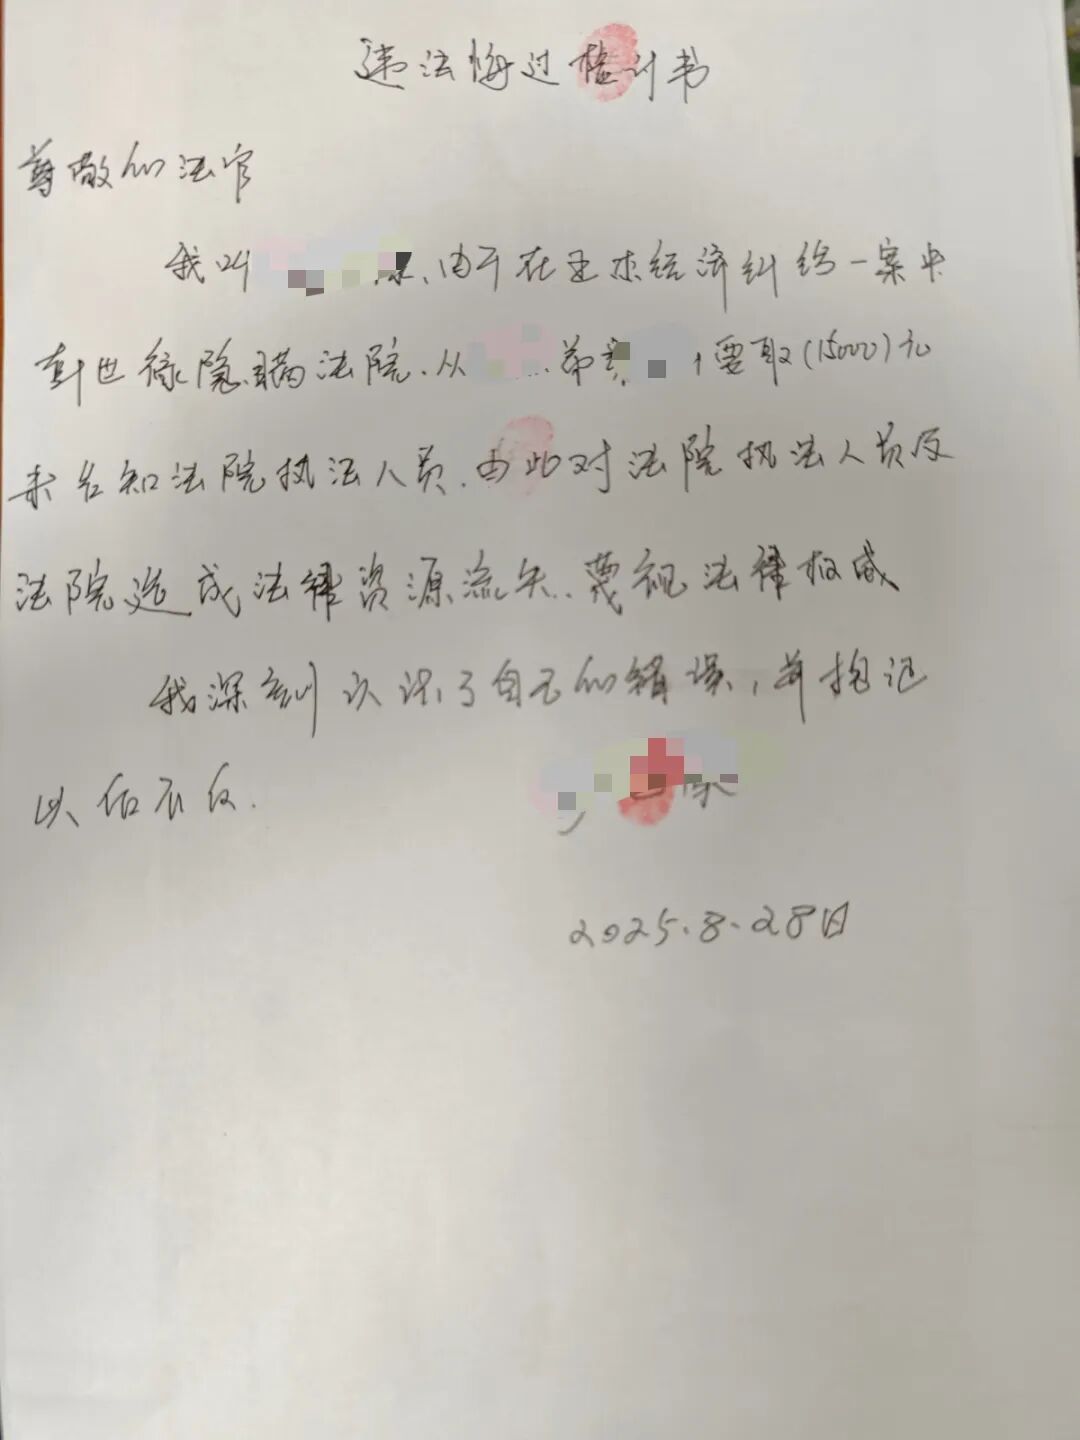 违法悔过检讨书
尊敬的法官
我叫 由于在 经济纠纷一案中
隐瞒法院.从 弟 要取(15000)元
未告知法院执法人员.由此对法院执法人员及
法院造成法律资源流失.蔑视法律权威
我深刻认识了自己的错误,并抱证
以后不仅.
2025.8.28日